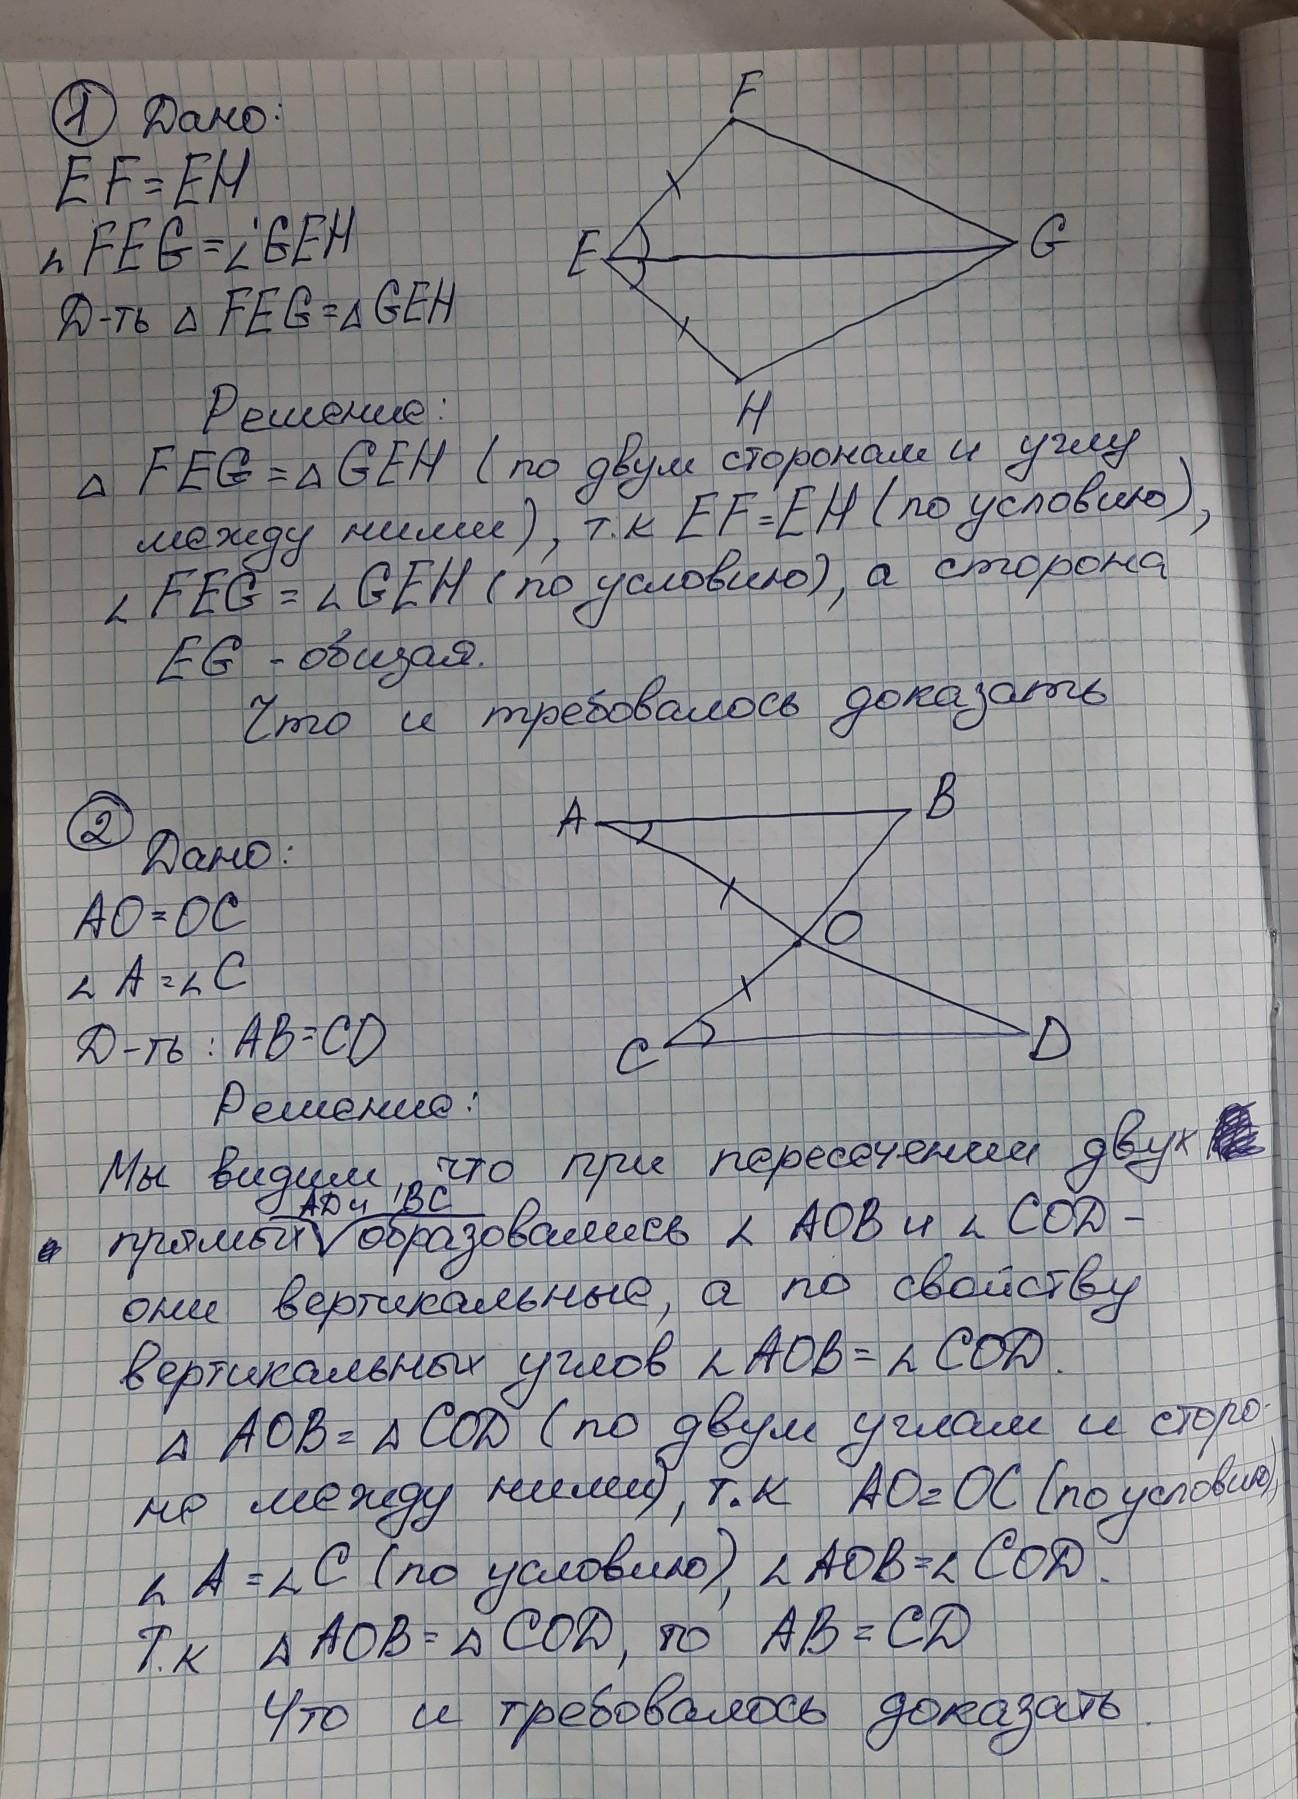 1 Дано:
EF=EH
∠FEG=∠GEH
Д-ть △FEG=△GEH
F
E
G
H
Решение:
△ FEG=△GEH (по двум сторонам и углу
между ними), т.к EF=EH (по условию),
∠FEG=∠GEH (по условию), а сторона
EG - общая.
Что и требовалось доказать
2
Дано:
AO=OC
∠A=∠C
Д-ть: AB=CD
A
B
O
C
D
Решение:
Мы видим, что при пересечении двух
AD и BC
прямых образовались ∠AOB и ∠COD-
они вертикальные, а по свойству
вертикальных углов ∠AOB=∠COD.
△ AOB=△COD (по двум углам и сторо-
не между ними), т.к AO=OC (по условию),
∠A=∠C (по условию), ∠AOB=∠COD.
Т.к △AOB=△COD, то AB=CD
Что и требовалось доказать.